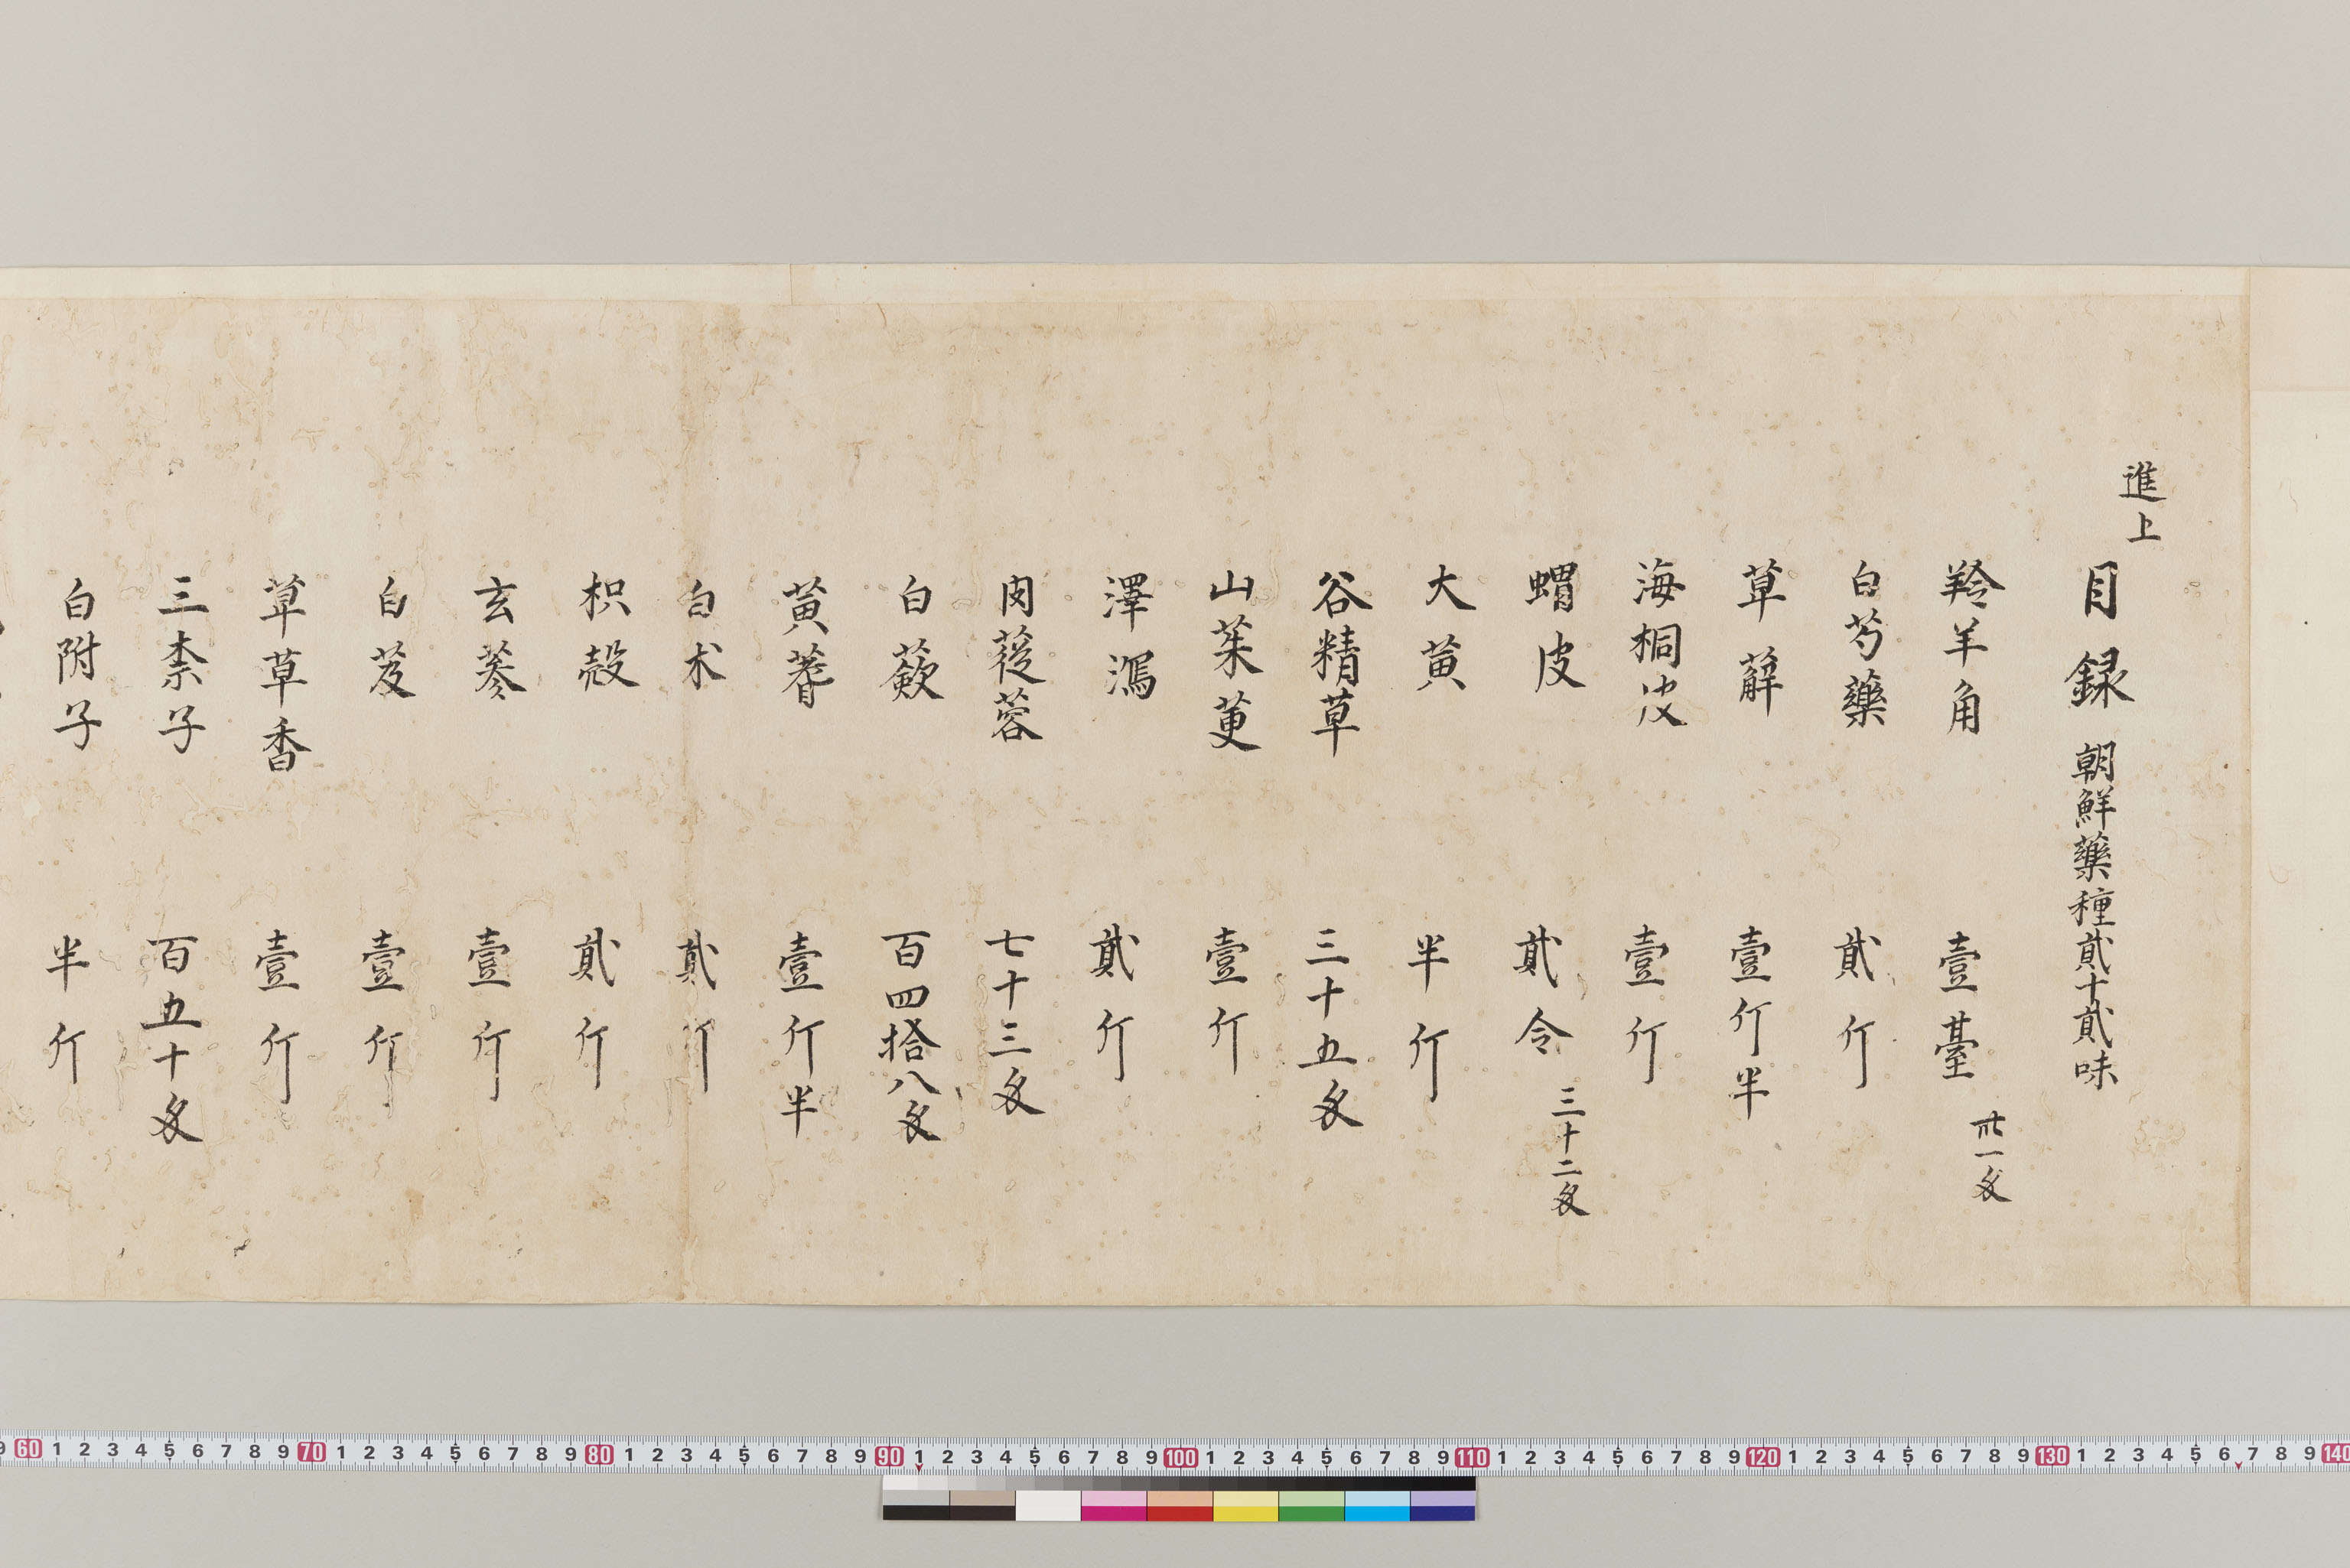 進上
目録 朝鮮藥種貳十貳味
羚羊角 壹䑓 卅一匁
白芍藥 貳斤
草薢 壹斤半
海桐皮 壹斤
蝟皮 貳令 三十二匁
大黄 半斤
谷精草 三十五匁
山茱萸 壹斤
澤瀉 貳斤
肉蓯蓉 七十三匁
白蘞 百四拾八匁
黄蓍 壹斤半
白朮 貳斤
枳殻 貳斤
玄蔘 壹斤
白芨 壹斤
草草香 壹斤
三柰子 百五十匁
白附子 半斤
60 1 2 3 4 5 6 7 8 9 70 1 2 3 4 5 6 7 8 9 80 1 2 3 4 5 6 7 8 9 90 1 2 3 4 5 6 7 8 9 100 1 2 3 4 5 6 7 8 9 110 1 2 3 4 5 6 7 8 9 120 1 2 3 4 5 6 7 8 9 130 1 2 3 4 5 6 7 8 9 140